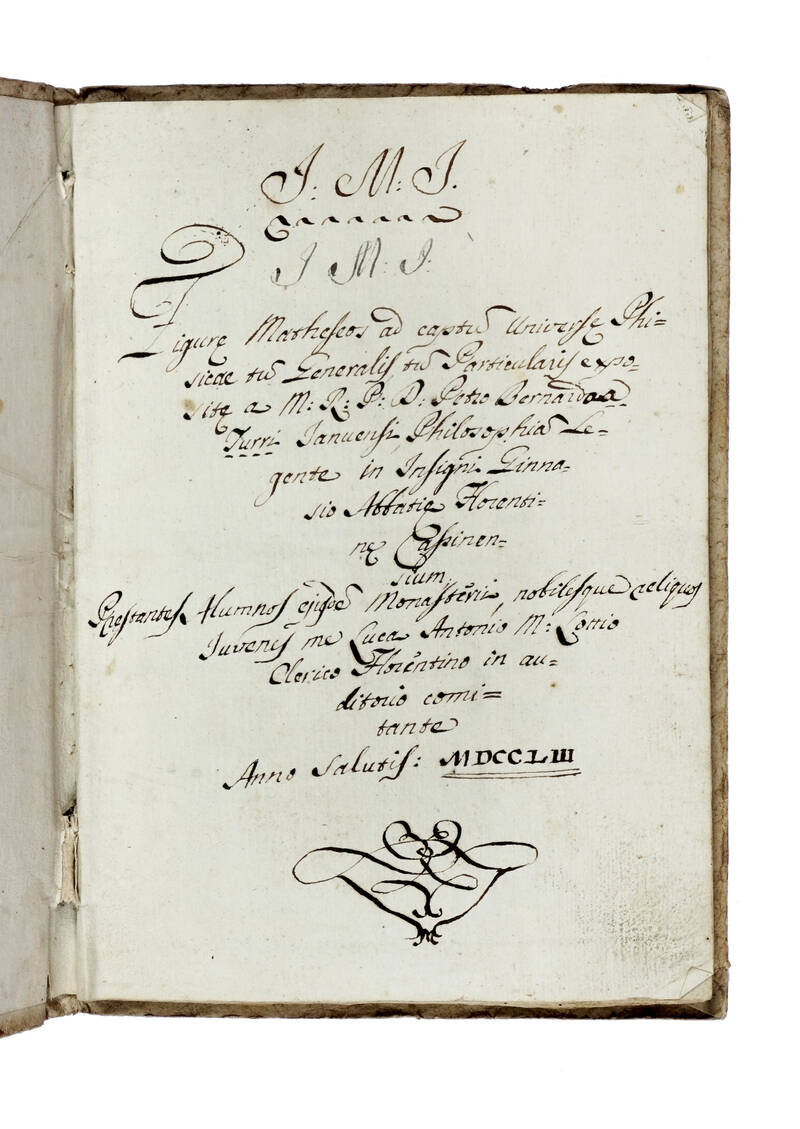 J: M: J.
J M: J:
Figurę Matheseos ad captū Universę Phi=
sicae tū Generalis tū Particularis expo=
sitę a M: R: P: D: Petro Bernardo a
Turri Januensi Philosophiā Le=
gente in Insigni Ginna=
sio Abbatię Florenti=
nę Cassinen=
sium,
Prestantes Alumnos ejusdē Monasterii, nobilesque reliquos
Juvenes me Luca Antonio M: Lottio
Clerico Florentino in au=
ditorio comi=
tante
Anno Salutis: MDCCLIII